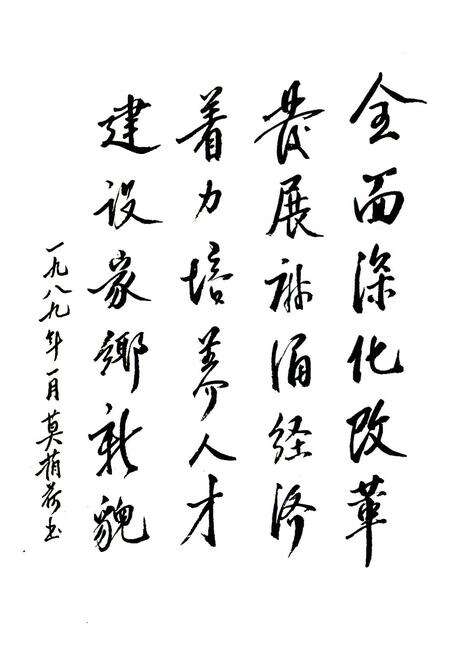 全面深化改革
發展麻涌经济
着力培养人才
建设家鄉新貌
一九八九年一月莫荷书